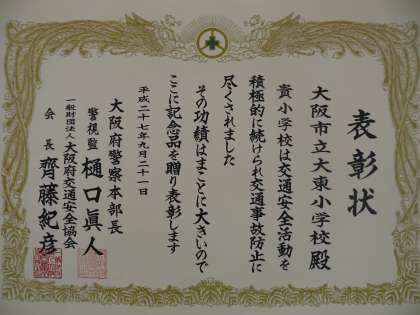 表彰状
大阪市立大東小学校殿
貴小学校は交通安全活動を
積極的に続けられ交通事故防止に
尽くされました
その功績はまことに大きいので
ここに記念品を贈り表彰します
平成二十七年九月二十一日
大阪府警察本部長
警視監 樋口眞人
一般財団法人 大阪府交通安全協会
会長 齊藤紀彦